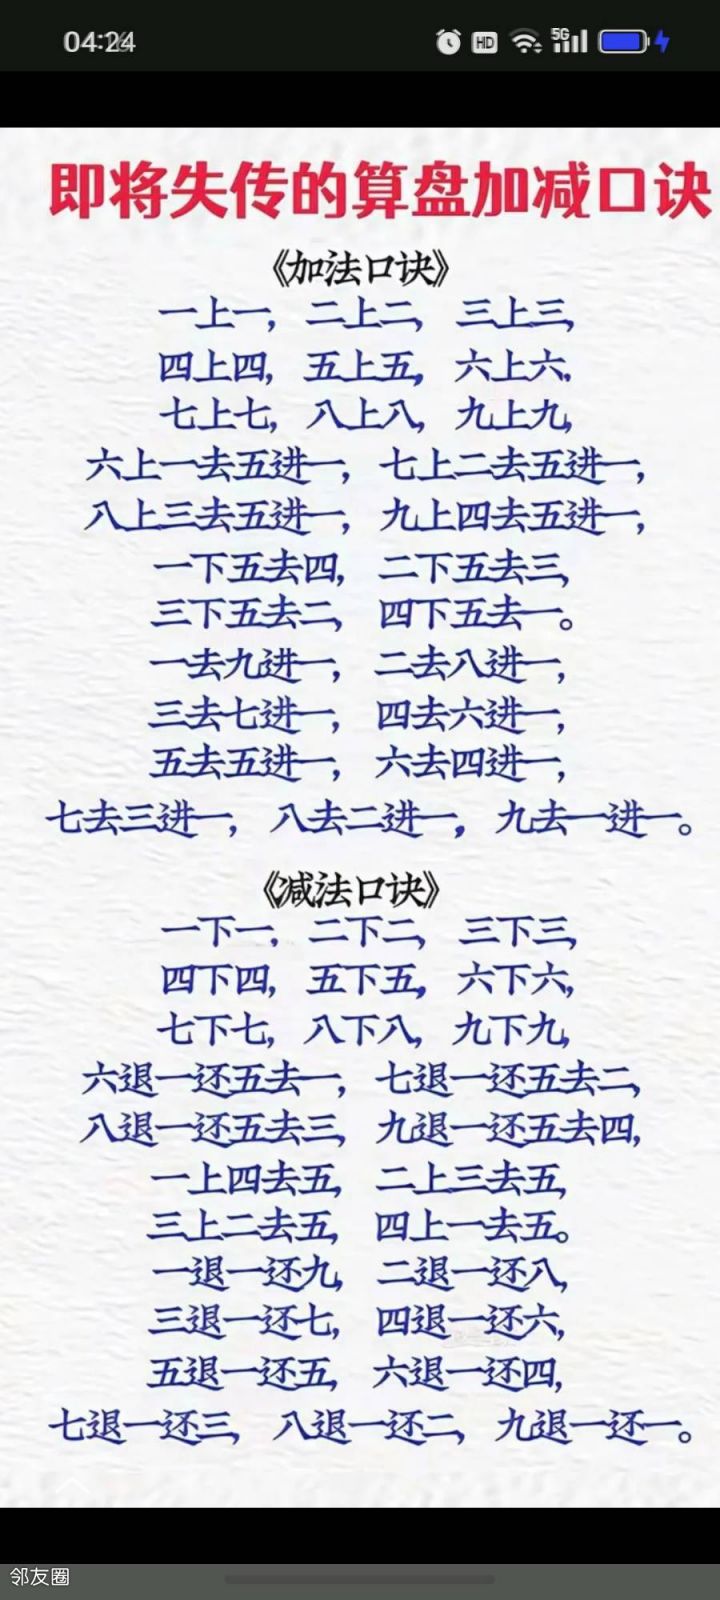 04:24
HD
5G
即将失传的算盘加减口诀
《加法口诀》
一上一，二上二，三上三，
四上四，五上五，六上六，
七上七，八上八，九上九，
六上一去五进一，七上二去五进一，
八上三去五进一，九上四去五进一，
一下五去四，二下五去三，
三下五去二，四下五去一。
一去九进一，二去八进一，
三去七进一，四去六进一，
五去五进一，六去四进一，
七去三进一，八去二进一，九去一进一。
《减法口诀》
一下一，二下二，三下三，
四下四，五下五，六下六，
七下七，八下八，九下九，
六退一还五去一，七退一还五去二，
八退一还五去三，九退一还五去四，
一上四去五，二上三去五，
三上二去五，四上一去五。
一退一还九，二退一还八，
三退一还七，四退一还六，
五退一还五，六退一还四，
七退一还三，八退一还二，九退一还一。
邻友圈